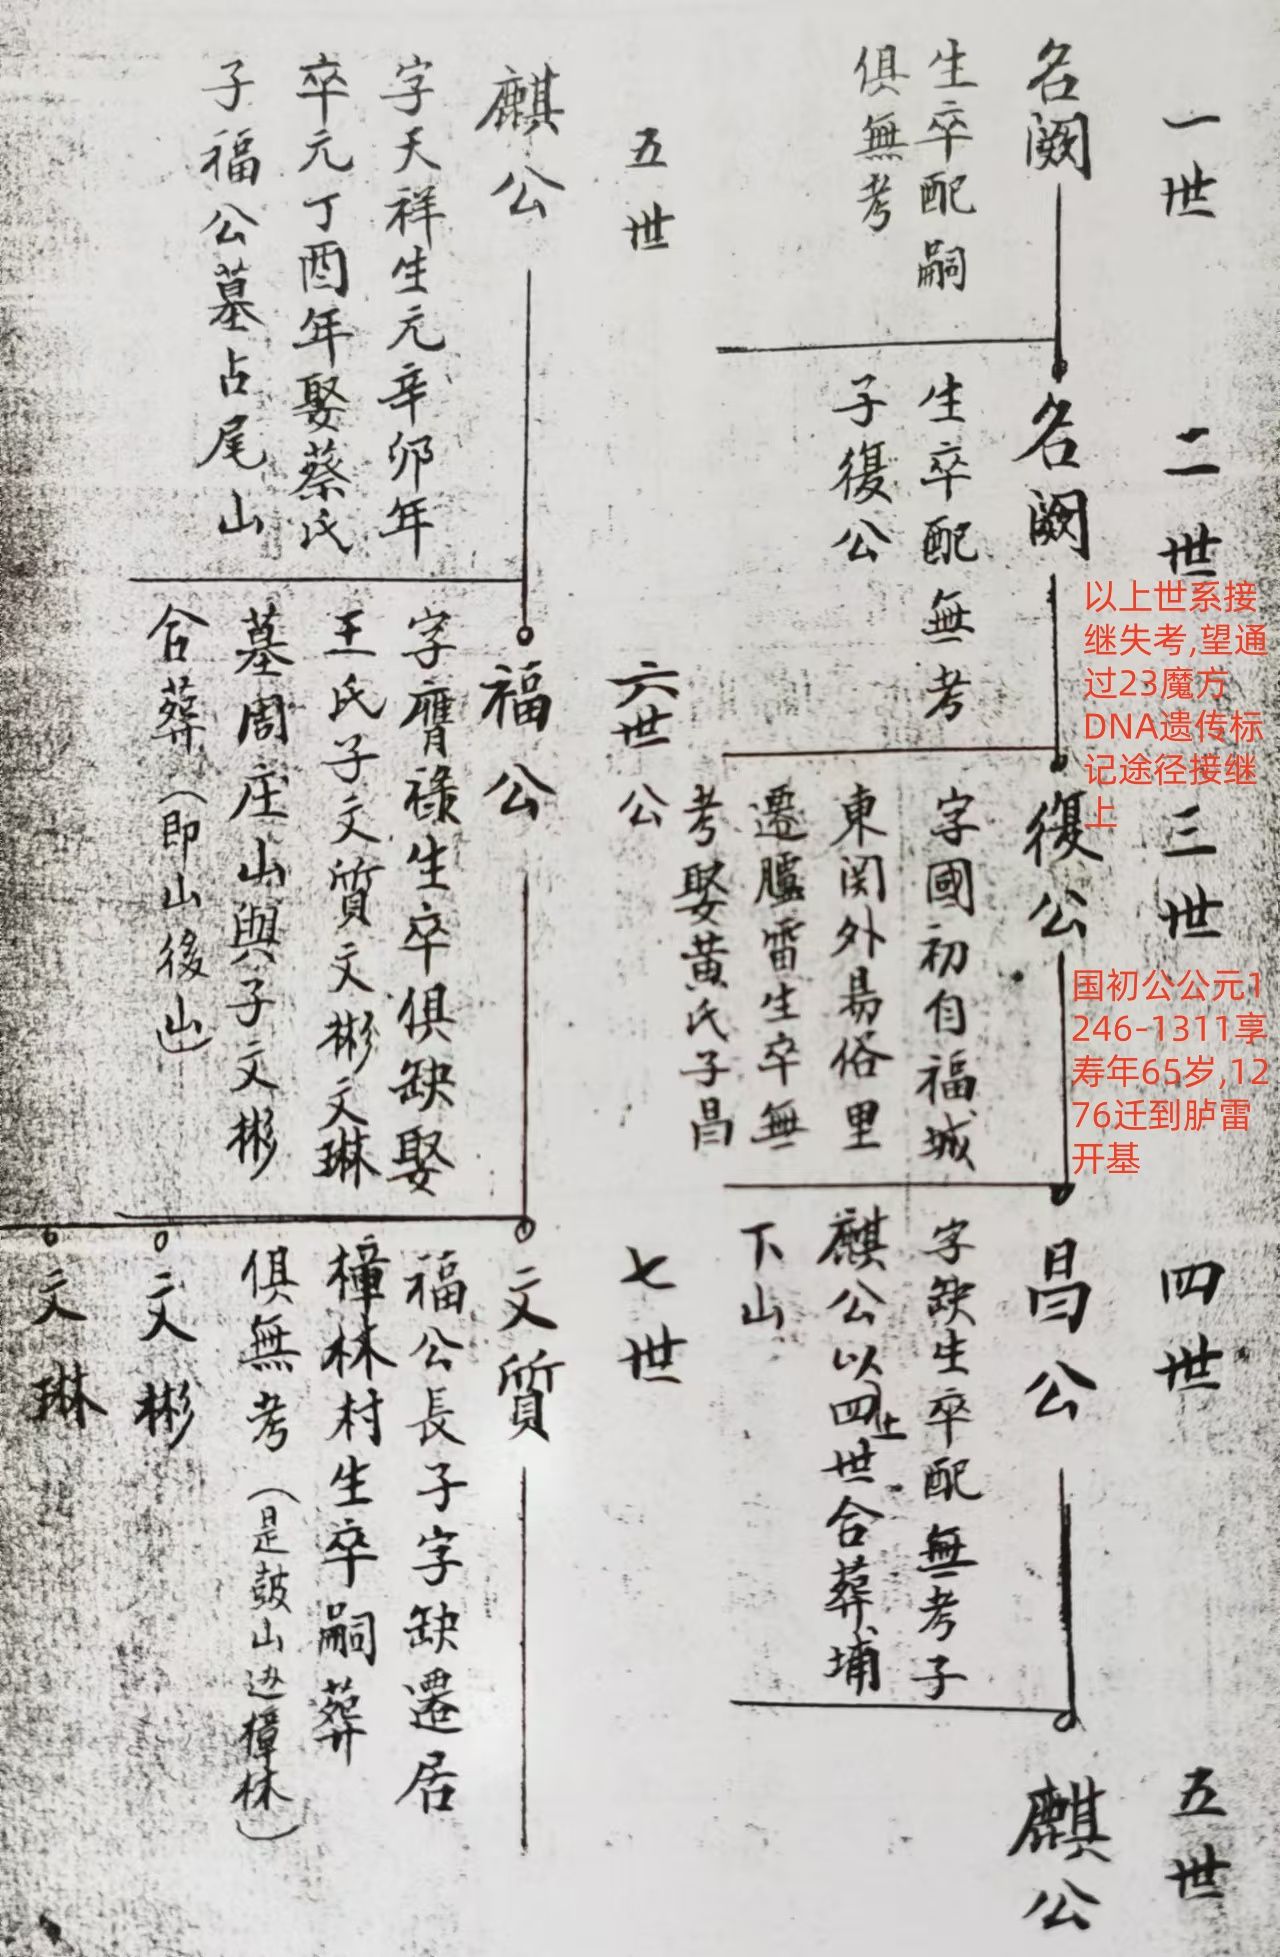 一世
名闕
生卒配嗣
俱無考
二世
名闕
生卒配無考
子復公
以上世系接
继失考,望通
过23魔方
DNA遗传标
记途径接继
上
三世
復公
字國初自福城
東関外易俗里
遷臚雷生卒無
考娶黃氏子昌
国初公公元1
246-1311享
寿年65岁,12
76迁到胪雷
开基
四世
昌公
字缺生卒配無考子
麒公以上四世合葬埔
下山
五世
麒公
五世
麒公
字天祥生元辛卯年
卒元丁酉年娶蔡氏
子福公墓占尾山
六世公
福公
字膺祿生卒俱缺娶
王氏子文質文彬文琳
墓周庄山與子文彬
合葬(即山後山)
七世
文質
福公長子字缺遷居
樟林村生卒嗣葬
俱無考(是鼓山边樟林)
文彬
文琳